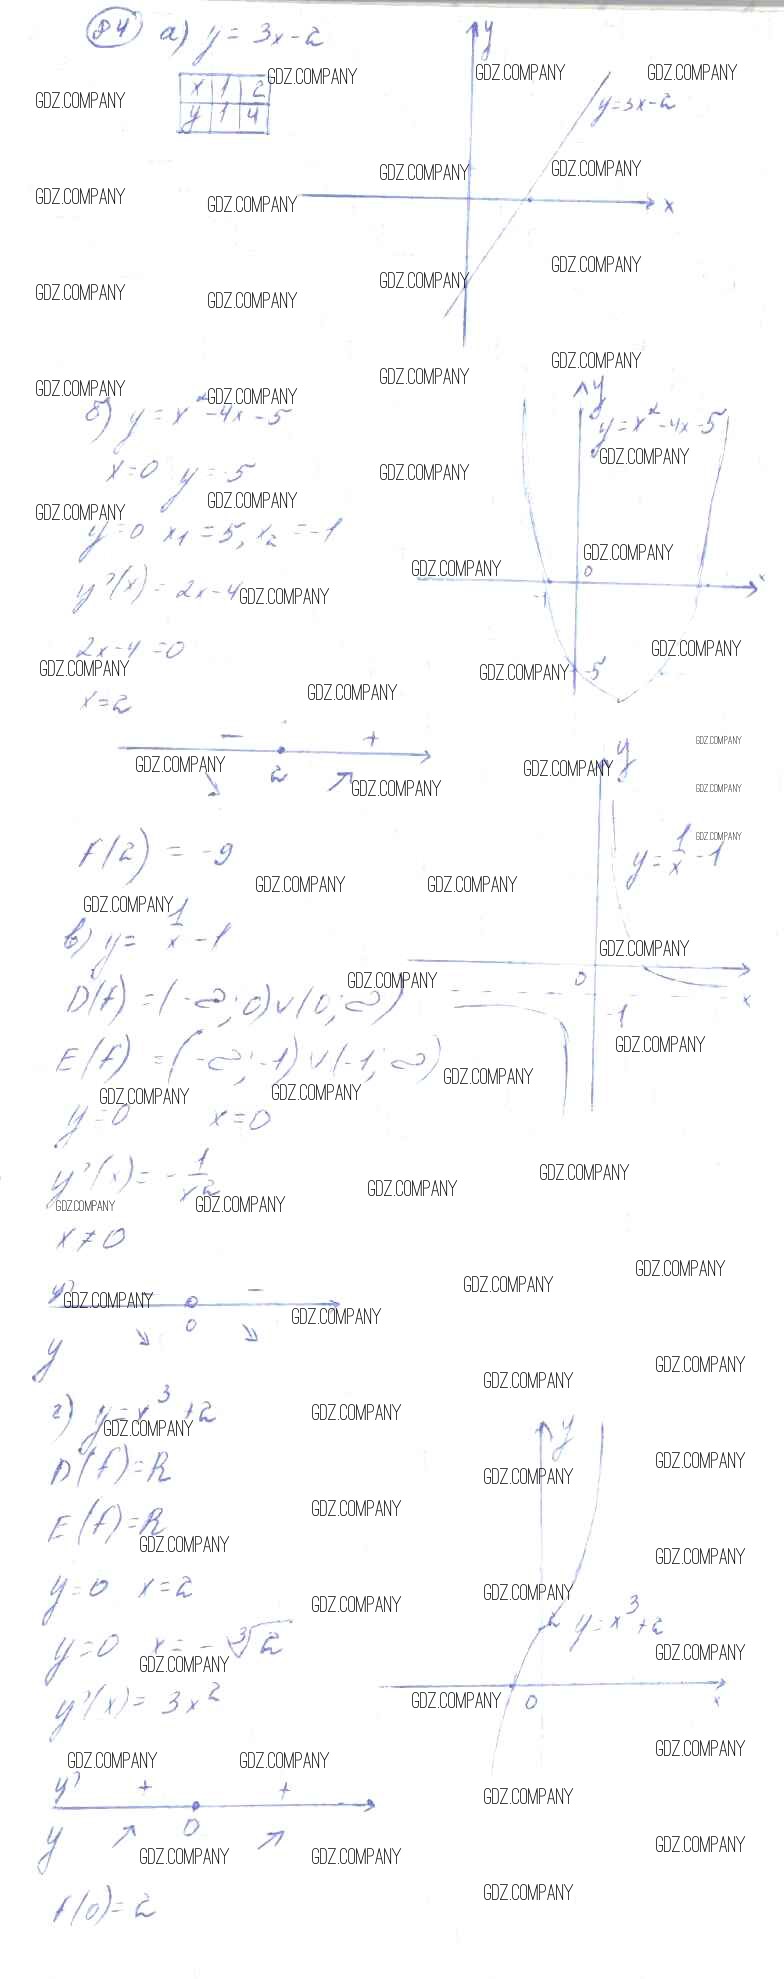 84 а) y = 3x-2
x 1 2
y 1 4
y
y=3x-2
x
б) y = x²-4x-5
x=0 y=-5
y=0 x₁=5, x₂=-1
y'(x) = 2x-4
2x-4=0
x=2
- +
2
↘ ↗
f(2) = -9
y
y=x²-4x-5
0
-1
x
-5
в) y = 1/x - 1
D(f) = (-∞; 0) ∪ (0; ∞)
E(f) = (-∞; -1) ∪ (-1; ∞)
y=0 x=0
y'(x) = - 1/x2
x≠0
y' - -
0
y ↘ ↘
y
y = 1/x - 1
0
x
-1
г) y=x³+2
D(f)=R
E(f)=R
y=0 x=2
y=0 x=-∛2
y'(x) = 3x²
y' + +
0
y ↗ ↗
f(0)=2
y
2 y=x³+2
0
x
GDZ.COMPANY